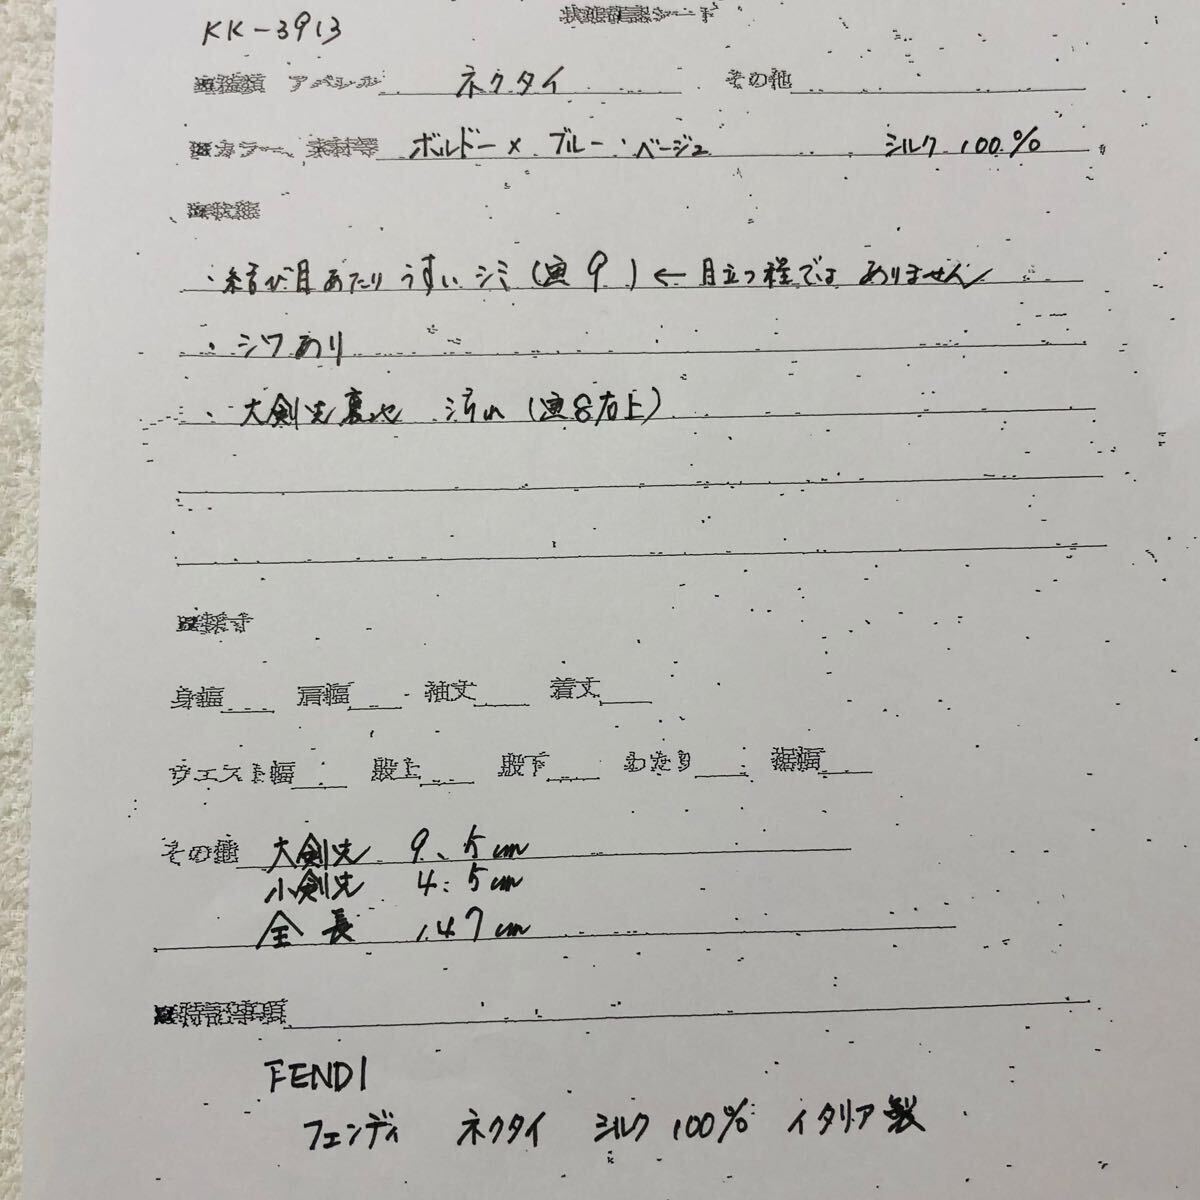 状態確認シート
KK-3913
■種類 アパレル ネクタイ その他
■カラー、素材等 ボルドー× ブルー・ベージュ シルク 100%
■状態
・結び目あたり うすいシミ(画9)← 目立つ程では ありません
・シワあり
・大剣先裏地 汚れ(画8右上)
■採寸
身幅 肩幅 袖丈 着丈
ウエスト幅 股上 股下 わたり 裾幅
その他 大剣先 9.5cm
小剣先 4.5cm
全長 147cm
■特記事項
FENDI
フェンディ ネクタイ シルク 100% イタリア製